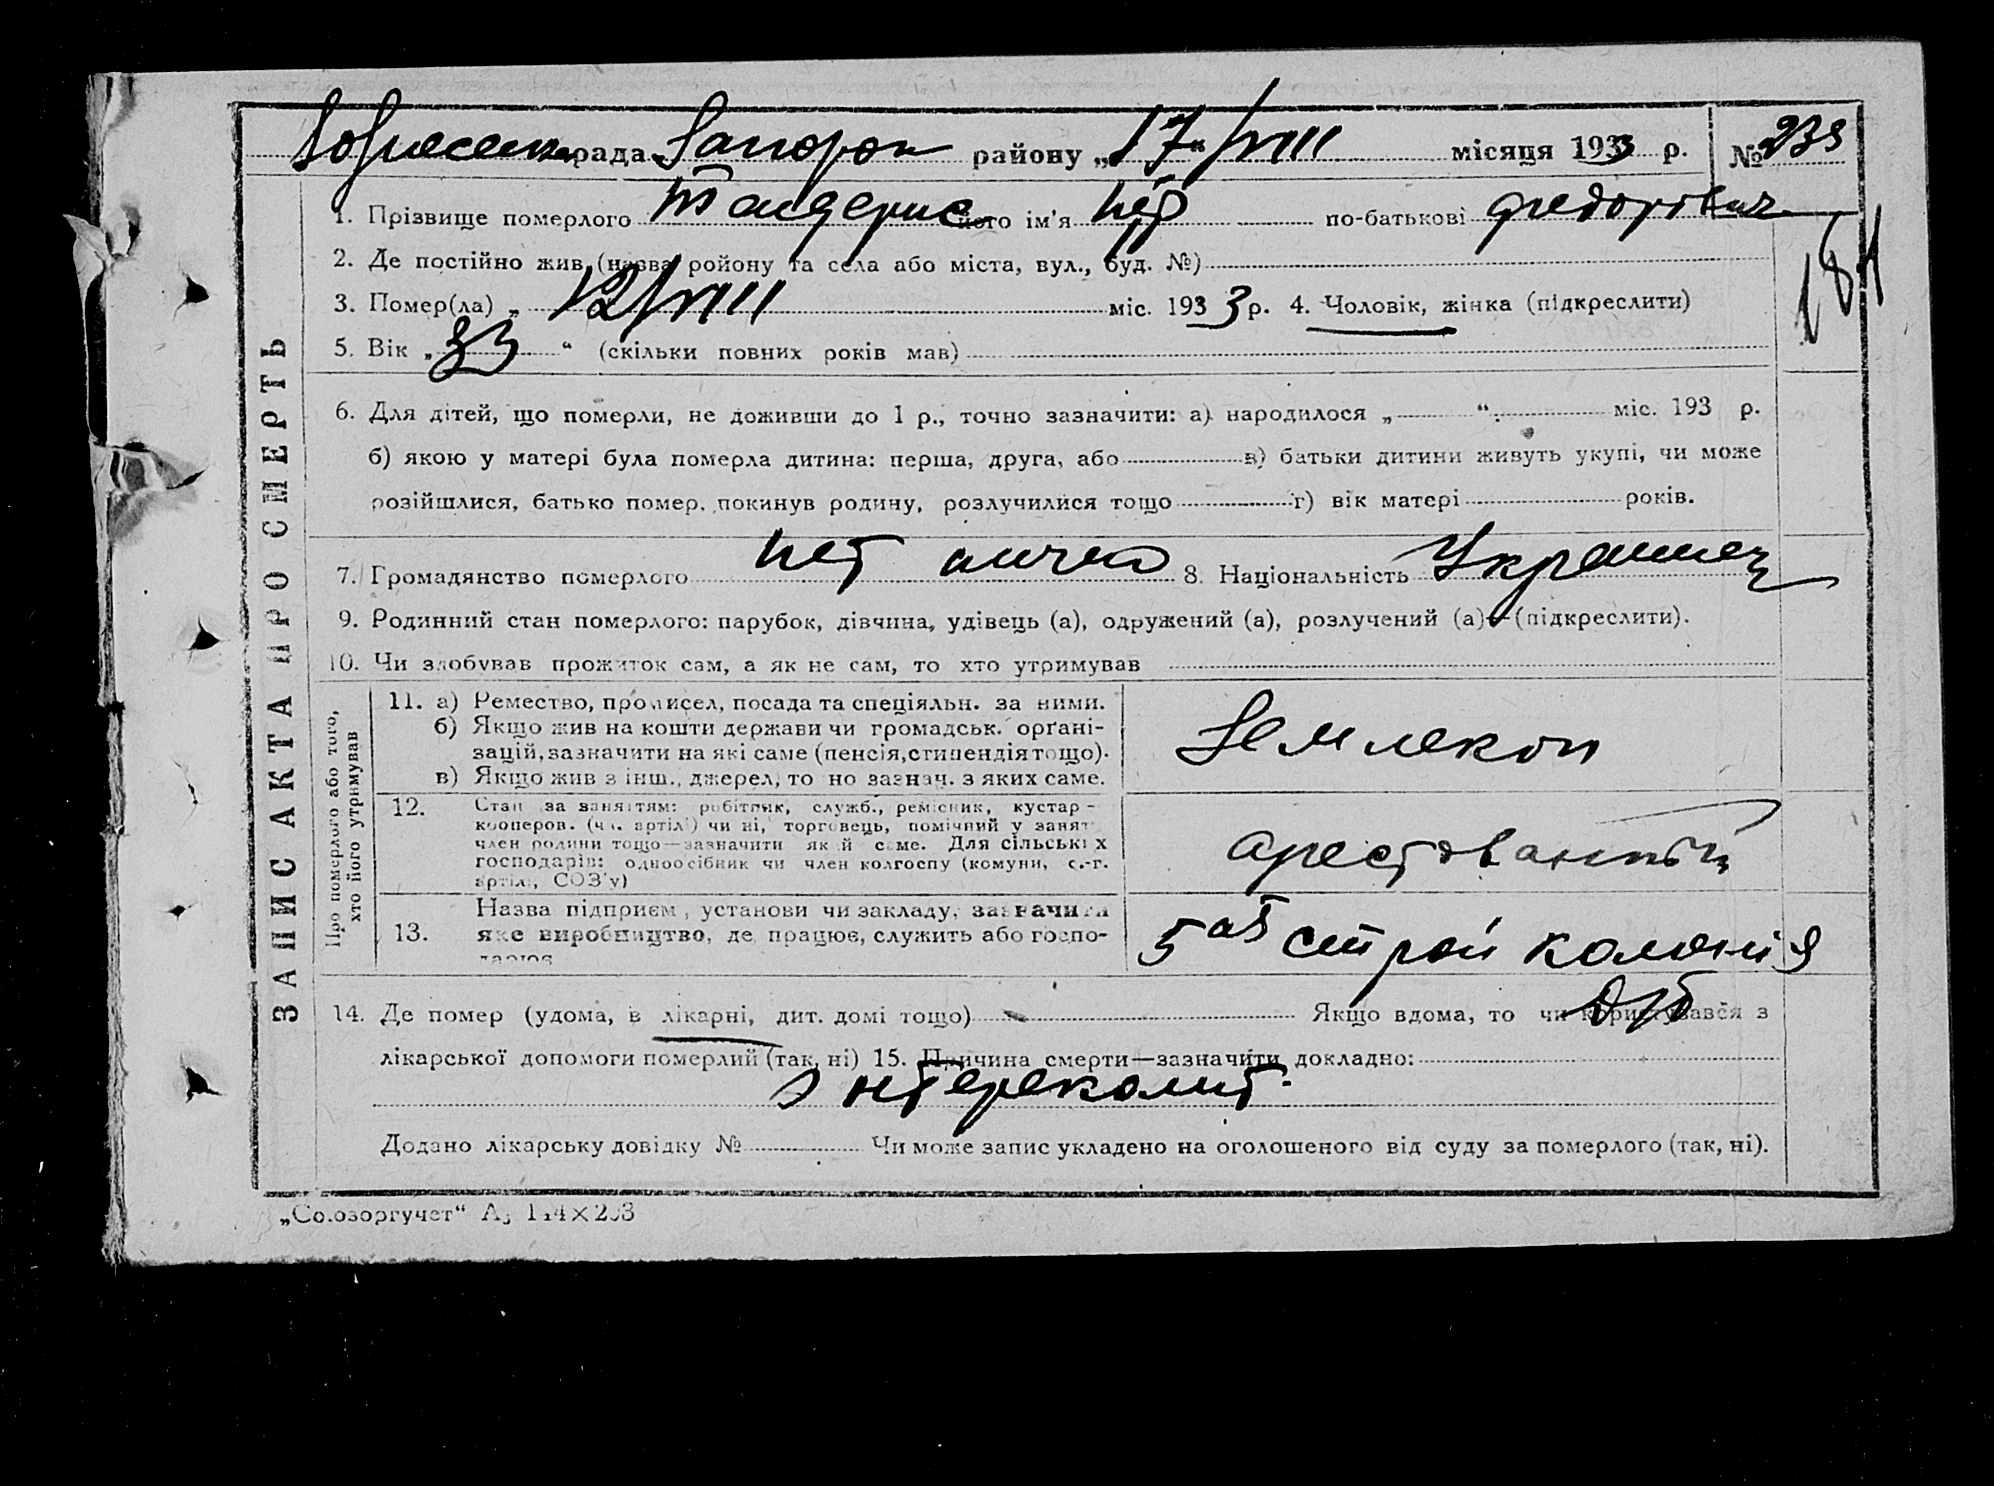 Вознесенка рада Запорож району „17“/VIII місяця 1933 р. № 239
1. Прізвище померлого його ім'я Пётр по-батькові Федорович
2. Де постійно жив (назва ройону та села або міста, вул., буд. №)
3. Помер(ла) „ 12/VIII міс. 1933 р. 4. Чоловік, жінка (підкреслити)
5. Вік „33“ (скільки повних років мав)
184
6. Для дітей, що померли, не доживши до 1 р., точно зазначити: а) народилося „ “ міс. 193 р.
б) якою у матері була померла дитина: перша, друга, або в) батьки дитини живуть укупі, чи може
розійшлися, батько помер, покинув родину, розлучилися тощо г) вік матері років.
7. Громадянство померлого нет 8. Національність Украинец
9. Родинний стан померлого: парубок, дівчина, удівець (а), одружений (а), розлучений (а)—(підкреслити).
10. Чи здобував прожиток сам, а як не сам, то хто утримував
ЗАПИС АКТА ПРО СМЕРТЬ
Про померлого або того,
хто його утримував
11. а) Ремество, промисел, посада та спеціяльн. за ними.
б) Якщо жив на кошти держави чи громадськ. органі-
зацій, зазначити на які саме (пенсія, стипендія тощо).
в) Якщо жив з інш., джерел, то но зазнач. з яких саме.
Землекоп
12. Стан за заняттям: робітник, служб., ремісник, кустар -
кооперов. (чл. артілі) чи ні, торговець, помічний у занят
член родини тощо—зазначити як й саме. Для сільських
господарів: одноосібник чи член колгоспу (комуни, с.-г.
артілі, СОЗ'у)
арестованный
13. Назва підприєм, установи чи закладу, зазначити
яке виробництво, де працює, служить або госпо-
дарює
5ая строй колония
14. Де помер (удома, в лікарні, дит. домі тощо) Якщо вдома, то чи користувався з
лікарської допомоги померлий (так, ні) 15. Причина смерти—зазначити докладно:
энтероколит.
Додано лікарську довідку № Чи може запис укладено на оголошеного від суду за померлого (так, ні).
„Союзоргучет“